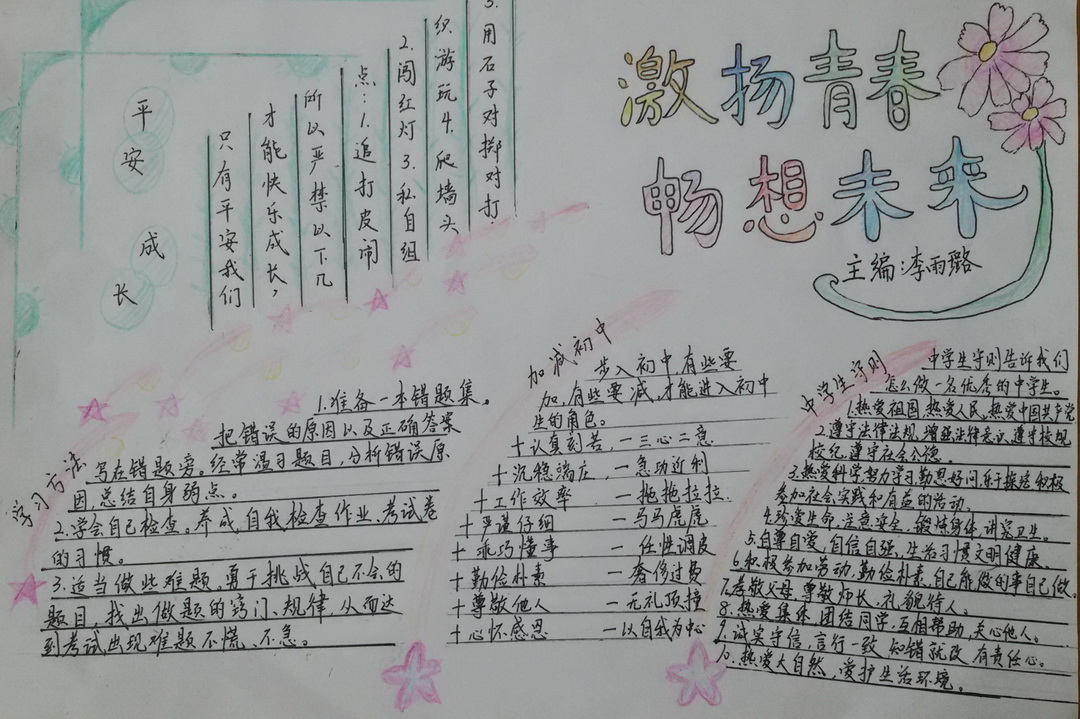 激扬青春
畅想未来
主编:李雨璐
平安成长
只有平安我们
才能快乐成长,
所以严禁以下几
点:1.追打皮闹
2.闯红灯3.私自组
织游玩4.爬墙头
5.用石子对掷对打.
学习方法
1.准备一本错题集。
把错误的原因以及正确答案
写在错题旁。经常温习题目,分析错误原
因,总结自身弱点。
2.学会自己检查。养成自我检查作业、考试卷
的习惯。
3.适当做些难题。勇于挑战自己不会的
题目,找出做题的窍门、规律,从而达
到考试出现难题不慌、不急。
加减初中
步入初中,有些要
加,有些要减,才能进入初中
生的角色。
+认真刻苦,一三心二意
+沉稳端庄,一急功近利
+工作效率 一拖拖拉拉.
+严谨仔细 一马马虎虎
+乖巧懂事 一任性调皮
+勤俭朴素 一奢侈过费
+尊敬他人 一无礼顶撞
+心怀感恩 一以自我为中心
中学生守则
中学生守则告诉我们
怎么做一名优秀的中学生。
1.热爱祖国,热爱人民,热爱中国共产党
2.遵守法律法规,增强法律意识,遵守校规
校纪,遵守社会公德。
3.热爱科学,努力学习,勤思好问,乐于探究,积极
参加社会实践和有益的活动。
4.珍爱生命,注意安全,锻炼身体,讲究卫生。
5.自尊自爱,自信自强,生活习惯文明健康。
6.积极参加劳动,勤俭朴素,自己能做的事自己做。
7.孝敬父母,尊敬师长,礼貌待人。
8.热爱集体,团结同学,互相帮助,关心他人。
9.诚实守信,言行一致,知错就改,有责任心。
10.热爱大自然,爱护生活环境。